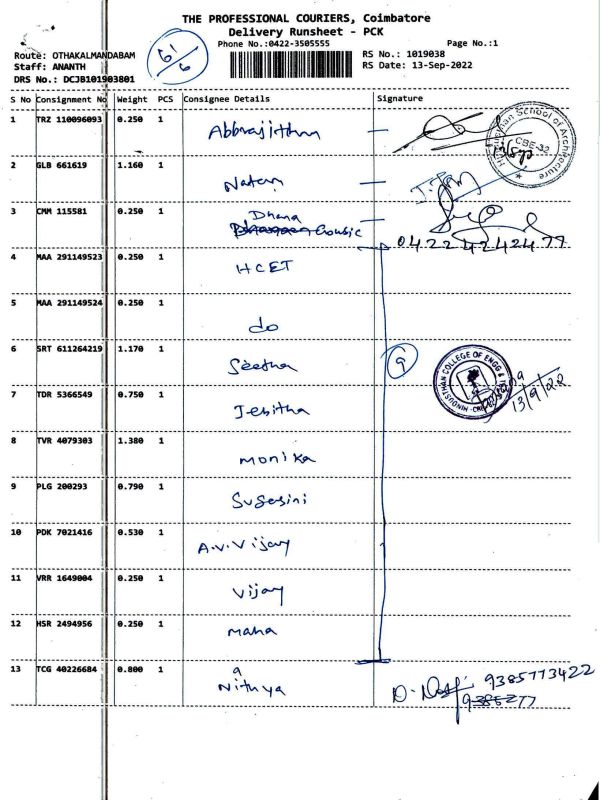 THE PROFESSIONAL COURIERS, Coimbatore
Delivery Runsheet - PCK
Phone No.:0422-3505555 Page No.:1
Route: OTHAKALMANDABAM RS No.: 1019038
Staff: ANANTH RS Date: 13-Sep-2022
DRS No.: DCJB101903801
61/6
S No Consignment No Weight PCS Consignee Details Signature
1 TRZ 110096093 0.250 1 Abbrajitthan —
School of Architecture CBE-32
2 GLB 661619 1.160 1 Natan —
3 CMM 115581 0.250 1 Dhana Gowsic —
04224242477
4 MAA 291149523 0.250 1 HCET
5 MAA 291149524 0.250 1 do
6 SRT 611264219 1.170 1 Seetha
9
HINDUSTHAN COLLEGE OF ENGG &
13/9/22
7 TDR 5366549 0.750 1 Jebitha
8 TVR 4079303 1.380 1 monika
9 PLG 200293 0.790 1 Sugasini
10 PDK 7021416 0.530 1 A.V.Vijay
11 VRR 1649004 0.250 1 Vijay
12 HSR 2494956 0.250 1 maha
13 TCG 40226684 0.800 1 Nithya
9385773422